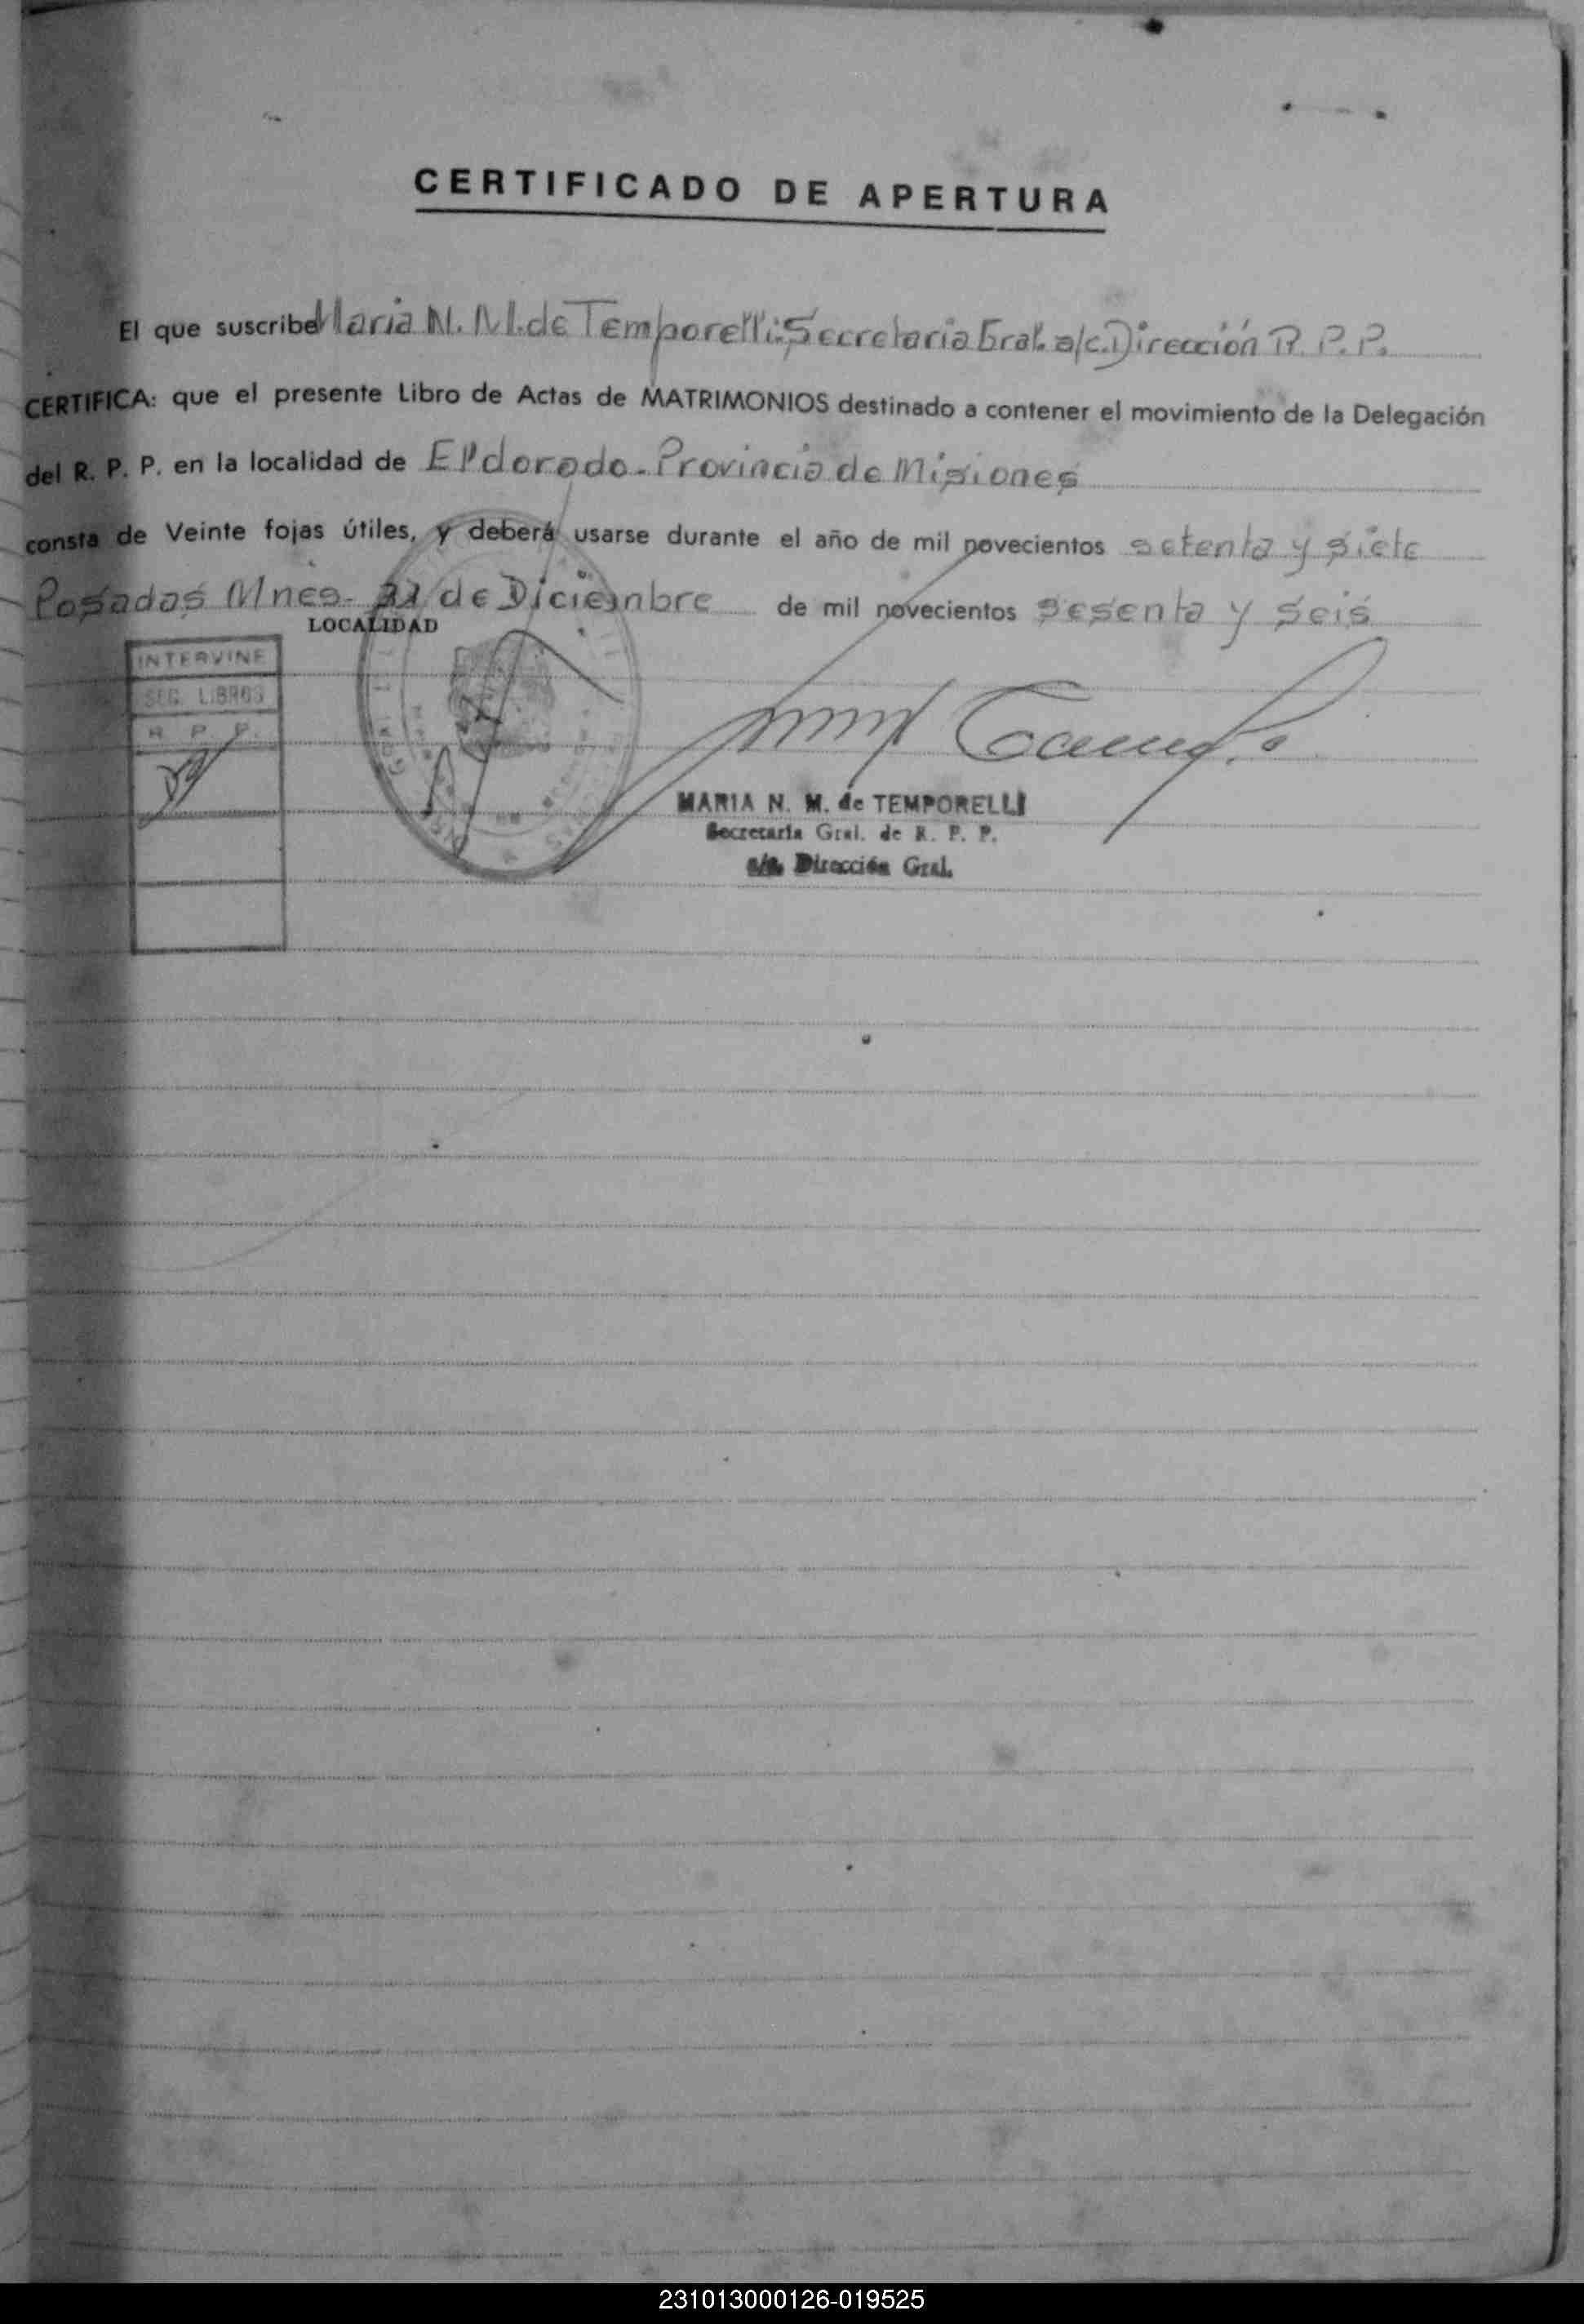 CERTIFICADO DE APERTURA
El que suscribe Maria N. M. de Temporelli: Secretaria Gral. a/c. Dirección R. P. P.
CERTIFICA: que el presente Libro de Actas de MATRIMONIOS destinado a contener el movimiento de la Delegación
del R. P. P. en la localidad de Eldorado - Provincia de Misiones
consta de Veinte fojas útiles, y deberá usarse durante el año de mil novecientos setenta y siete
Posadas Mnes - 31 de Diciembre de mil novecientos sesenta y seis
LOCALIDAD
INTERVINE
SEC. LIBROS
R. P. P.
MARIA N. M. de TEMPORELLI
Secretaria Gral. de R. P. P.
a/c. Dirección Gral.
231013000126-019525